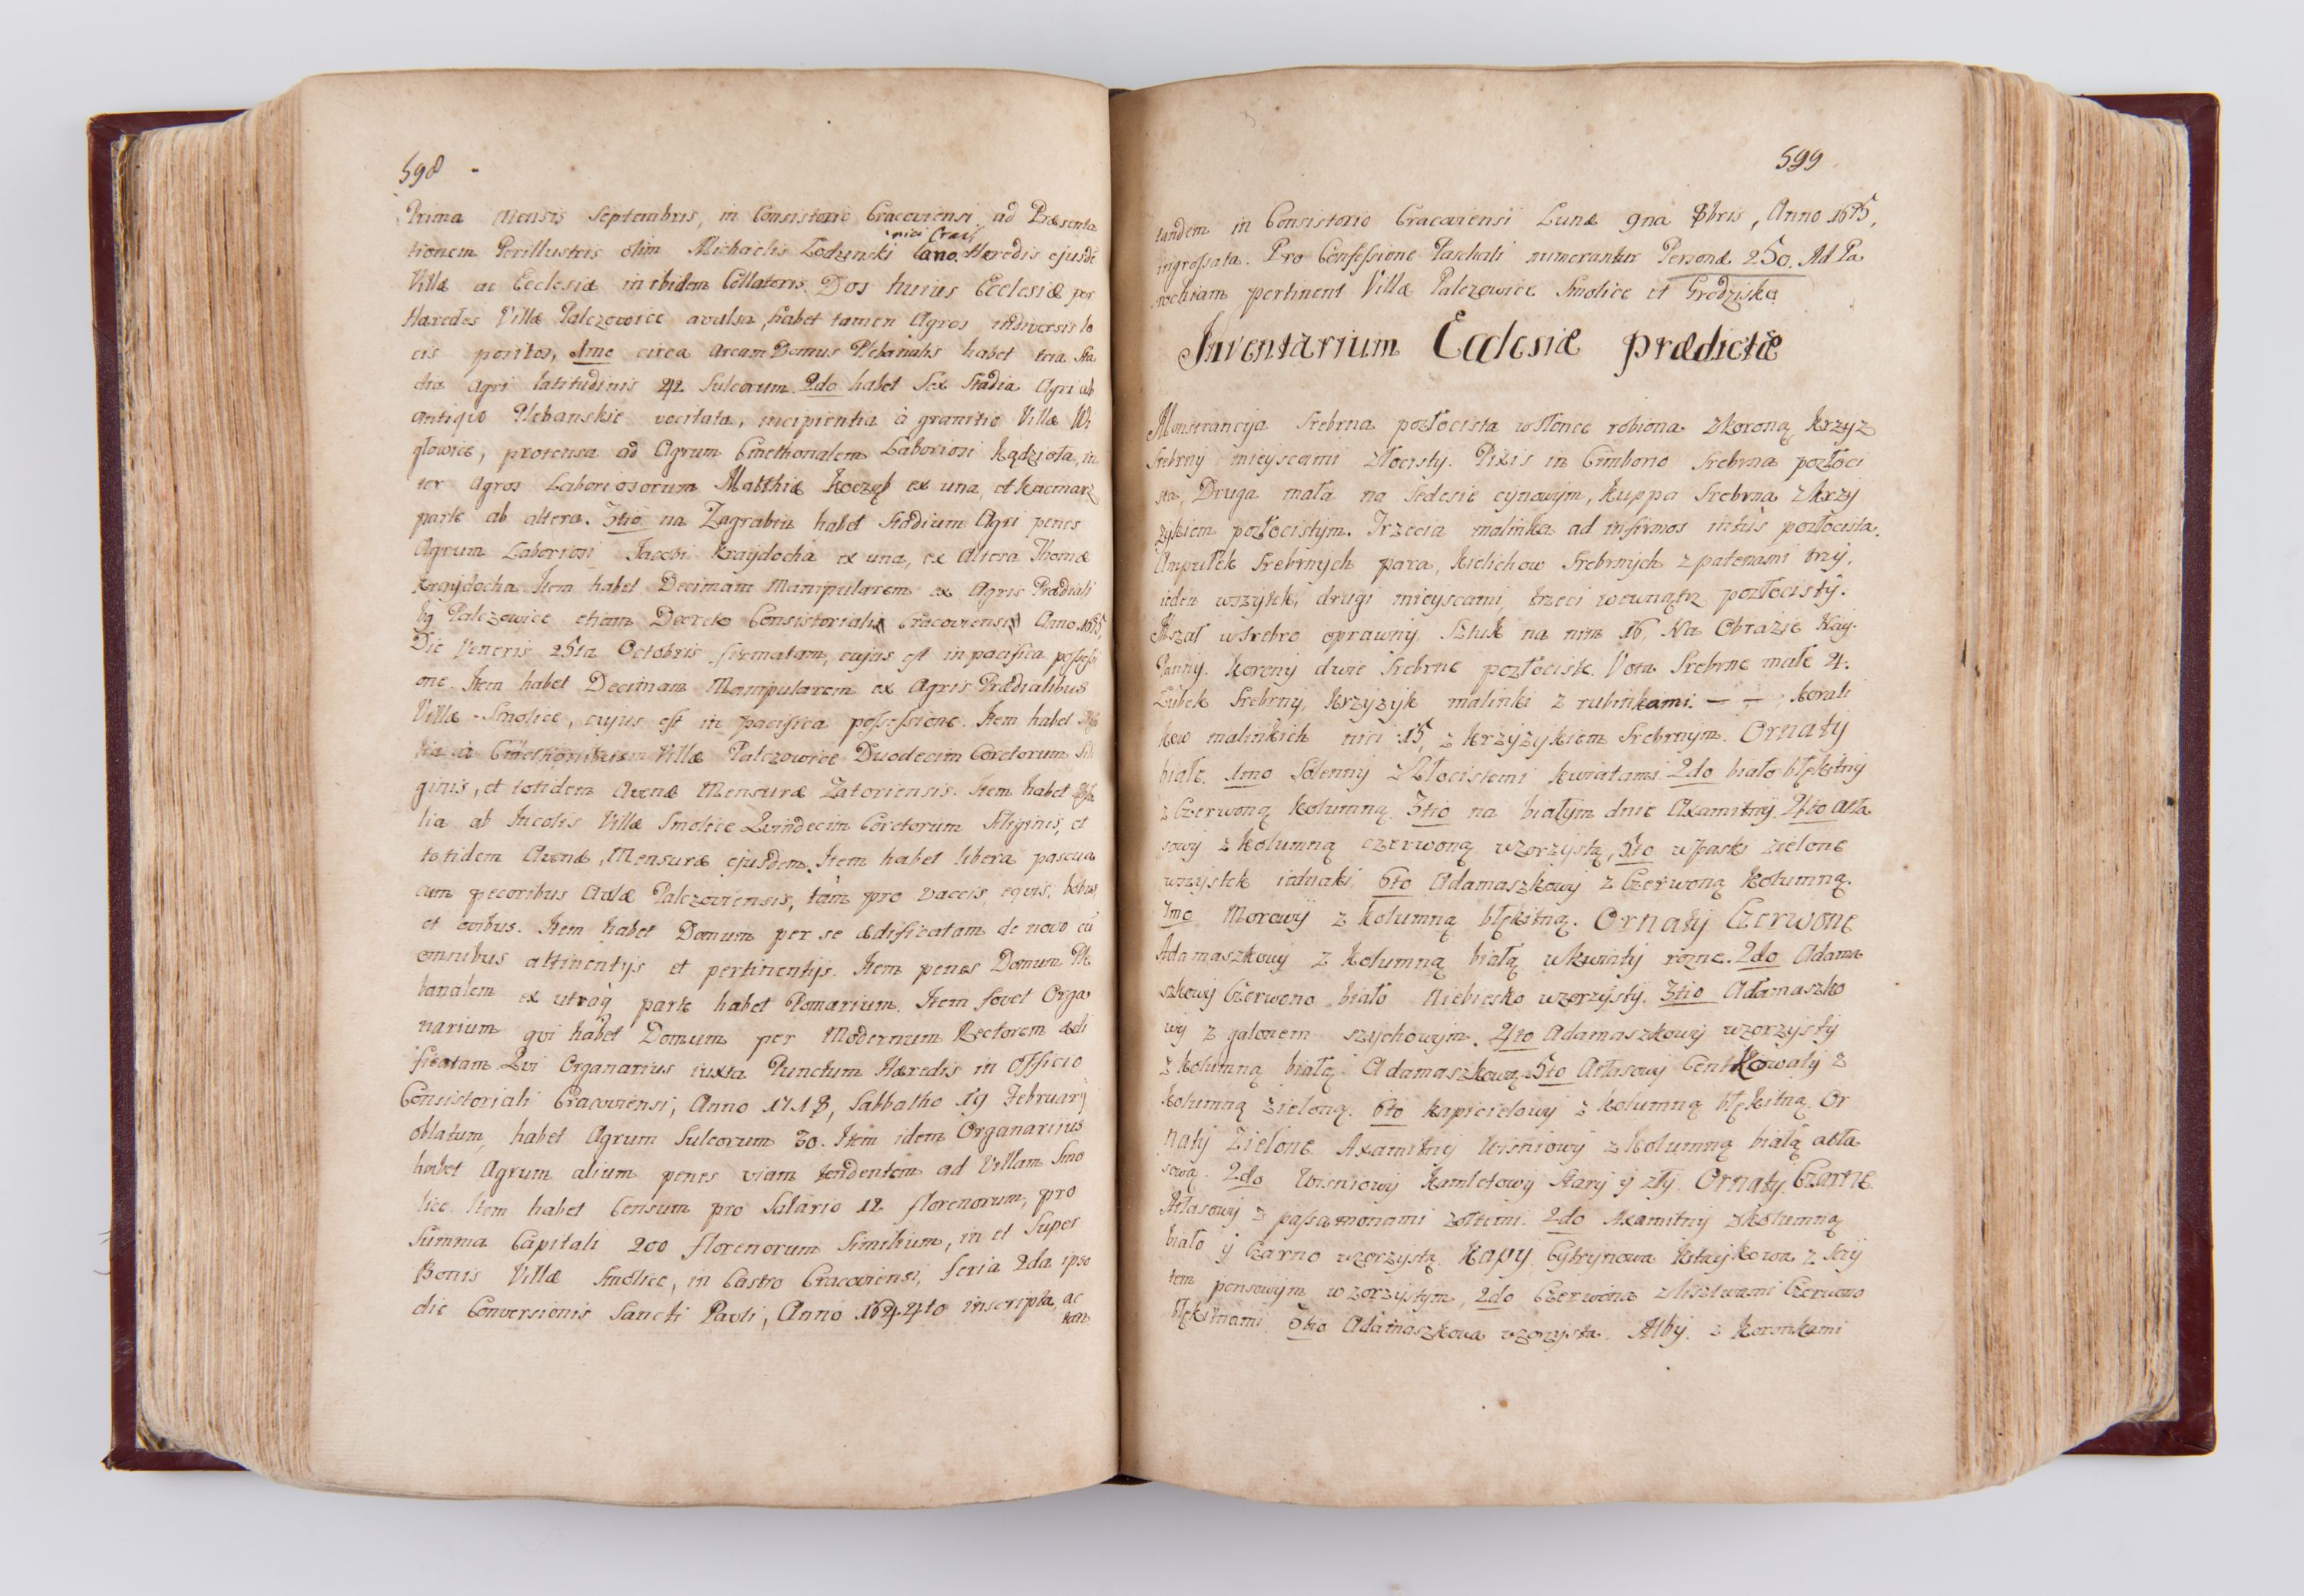 598
Prima Mensis Septembris, in Consistorio Cracoviensi, ad Præsenta
nici Crac:
tionem Perillustris olim Michaelis Łodzinski Cano. Hæredis ejusdē
Villæ ac Ecclesiæ inibidem Collatoris. Dos huius Ecclesiæ per
Hæredes Villæ Palczowice avulsa, habet tamen Agros in diversis lo
cis positos, 1mo circa Aream Domus Plebanalis habet tria Sta
dia Agri latitudinis 42 Sulcorum. 2do habet Sex Stadia Agri ab
antiqvo Plebanskie vocitata, incipientia à granitie Villæ Wi
głowice, protensa ad Agrum Cmethonalem Laboriosi Kądzioła, in
ter Agros Laboriosorum Matthiæ Koczęł ex una, et Kacmarz
parte ab altera. 3tio na Zagrabiu habet Stadium Agri penes
Agrum Laboriosi Jacobi Kraydocha ex una, ex Altera Thomæ
Kraydocha. Item habet Decimam Manipularem ex Agris Prædiali
bq Palczowice etiam Decreto Consistoriali Cracoviensi Anno 1675,
Die Veneris 25ta Octobris firmatam, cujus est in pacifica possessi
one. Item habet Decimam Manipularem ex Agris Prædialibus
Villæ Smolice, cujus est in pacifica possessione. Item habet
à Cmethonibus Villæ Palczowice Duodecim Coretorum Sili
ginis, et totidem Avenæ Mensuræ Zatoriensis. Item habet Missa
lia ab Incolis Villæ Smolice Quindecim Coretorum Siliginis, et
totidem Avenæ, Mensuræ ejusdem. Item habet libera pascua
cum pecoribus Aulæ Palczoviensis, tàm pro vaccis, eqvis, bobus,
et ovibus. Item habet Domum per se ædificatam de novo cū
omnibus attinentijs et pertinentijs. Item penes Domum Ple
banalem ex utraq parte habet Pomarium. Item fovet Orga
narium qvi habet Domum per Modernum Rectorem ædi
ficatam. Qui Organarius iuxta Punctum Hæredis in Officio
Consistoriali Cracoviensi, Anno 1718, Sabbatho 19 Februarij
oblatum, habet Agrum Sulcorum 30. Item idem Organarius
habet Agrum alium penes viam tendentem ad Villam Smo
lice. Item habet Censum pro Salario 12 florenorum, pro
Summa Capitali 200 florenorum Similium, in et Super
Bonis Villæ Smolice, in Castro Cracoviensi, feria 2da ipso
die Conversionis Sancti Pauli, Anno 1644to inscripta, ac
tan
599
tandem in Consistorio Cracoviensi Lunæ 9na 8bris, Anno 1675,
ingrossata. Pro Confessione Paschali numerantur Personæ 250. Ad Pa
rochiam pertinent Villæ Palczowice Smolice et Grodzisko
Inventarium Ecclesiæ prædictæ
Monstrancyja Srebrna pozłocista w słońce robiona z koroną krzyz
Srebrny mieyscami złocisty. Pixis in Cimborio Srebrna pozłoci
sta, Druga mała na Sedesie cynowym, kuppa Srebrna z krzy
zykiem pozłocistym. Trzecia malinka ad infirmos intus pozłocista.
Ampułek Srebrnych para, kielichow Srebrnych z patenami trzy,
ieden wszytek, drugi mieyscami, trzeci wewnątrz pozłocisty.
Mszał w srebro oprawny, Sztuk na nim 16. Na Obrazie Nay:
Panny. korony dwie Srebrne pozłociste. Vota Srebrne małe 4.
Ząbek Srebrny, krzyzyk malinki z rubinkami. — — , korali
kow malinkich nici 15, z krzyzykiem Srebrnym. Ornaty
białe. 1mo Solenny z złocistemi kwiatami. 2do biało błękitny
z Czerwoną kolumną. 3tio na białym dnie Axamitny. 4to atła
sowy z kolumną czerwoną wzorzystą, 5to w paski zielone
wszystek iednaki. 6to Adamaszkowy z Czerwoną kolumną.
7mo Morowy z kolumną błękitną. Ornaty Czerwone
Adamaszkowy z kolumną białą w kwiaty rozne. 2do Adama
szkowy Czerwono biało Niebiesko wzorzysty. 3tio Adamaszko
wy z galonem szychowym. 4to Adamaszkowy wzorzysty
z kolumną białą Adamaszkową. 5to Atłasowy Centkowaty z
kolumną zieloną. 6to kapiciolowy z kolumną błękitną. Or
naty Zielone. Axamitny Wisniowy z kolumną białą atła
sową. 2do Wisniowy kamletowy Stary y zły. Ornaty Czarne.
Atłasowy z passamonami zołtemi. 2do Axamitny z kolumną
biało y Czarno wzorzystą. Kapy Cytrynowa kitaykowa z szcy
tem pensowym wzorzystym, 2do Czerwona z listwami Czerwono
błękitnami. 3tio Adamaszkowa wzorzysta. Alby. z koronkami